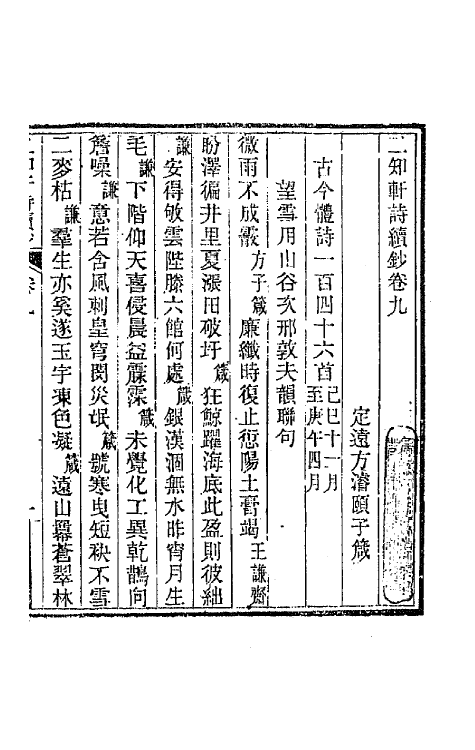 二知軒詩續鈔卷九
定遠方濬頤子箴
古今體詩一百四十六首己巳十一月至庚午四月
望雪用山谷次邢敦夫韻聯句
微雨不成霰方子箴廉纖時復止愆陽土膏竭王謙齋
盼澤徧井里夏漲田破圩箴狂鯨躍海底此盈則彼絀
謙安得敂雲陛滕六館何處箴銀漢涸無水昨宵月生
毛謙下階仰天喜侵晨益霡霂箴未覺化工異乾鵲向
簷噪謙意若含風刺皇穹閔災氓箴號寒曳短袂不雪
二麥枯謙羣生亦奚遂玉宇凍色凝箴遠山羃蒼翠林